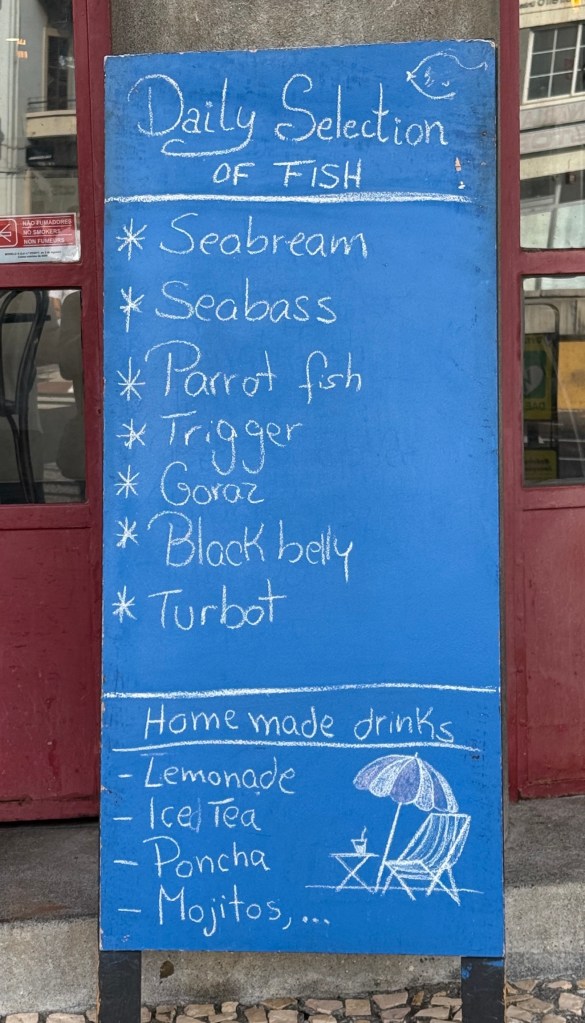 Daily Selection
OF FISH
* Seabream
* Seabass
* Parrot fish
* Trigger
* Goraz
* Black belly
* Turbot
Home made drinks
- Lemonade
- Ice Tea
- Poncha
- Mojitos,...
NÃO FUMADORES
NO SMOKERS
NON FUMEURS